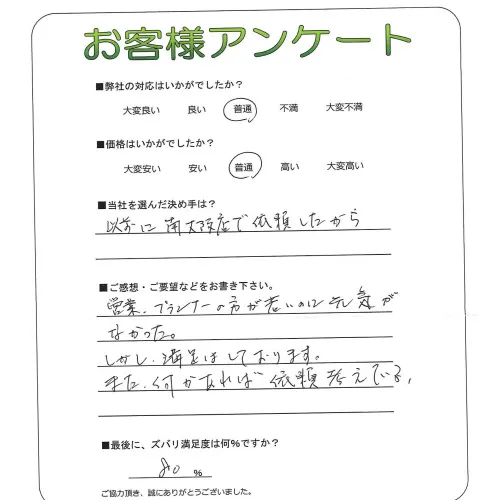 お客様アンケート
■弊社の対応はいかがでしたか？
大変良い 良い 普通 不満 大変不満
■価格はいかがでしたか？
大変安い 安い 普通 高い 大変高い
■当社を選んだ決め手は？
以前に南大阪店で依頼したから
■ご感想・ご要望などをお書き下さい。
営業、プランナーの方が若いのに元気が
なかった。
しかし、満足はしております。
また、何かあれば依頼考えている。
■最後に、ズバリ満足度は何%ですか？
80 %
ご協力頂き、誠にありがとうございました。